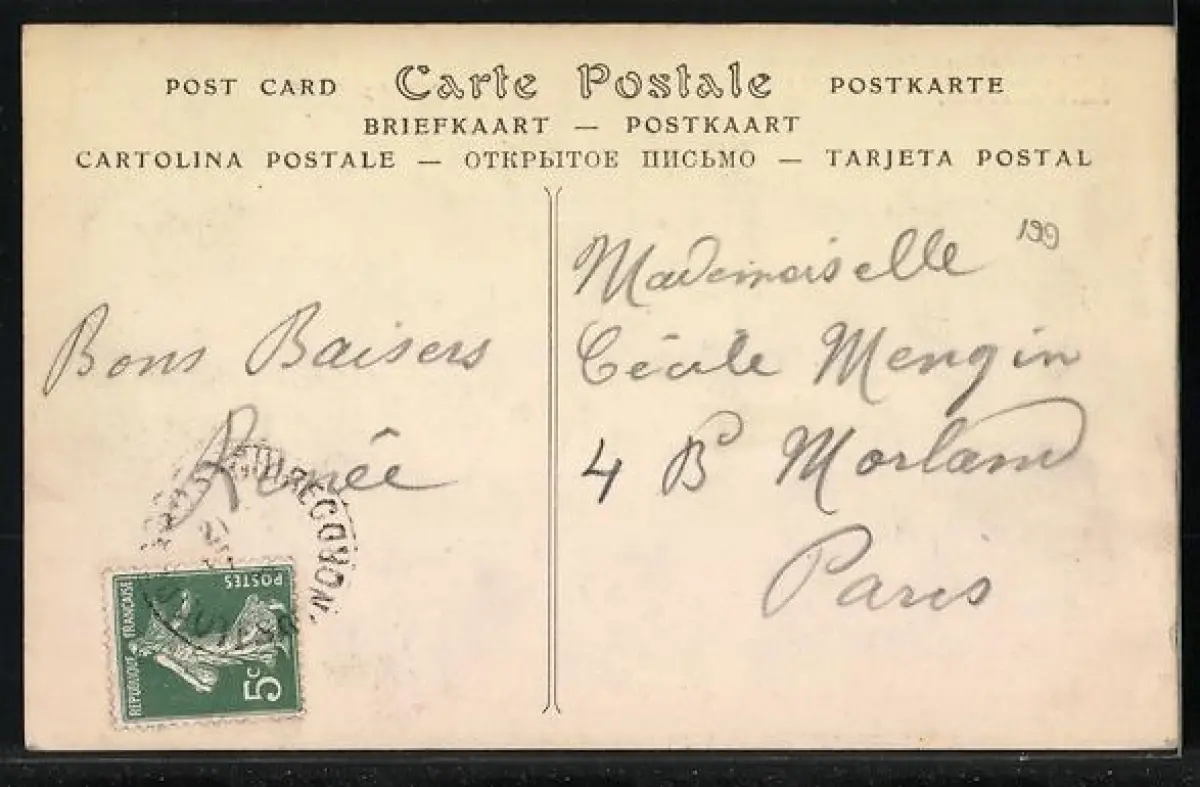 POST CARD Carte Postale POSTKARTE
BRIEFKAART — POSTKAART
CARTOLINA POSTALE — ОТКРЫТОЕ ПИСЬМО — TARJETA POSTAL
Bons Baisers
Renée
REPUBLIQUE FRANÇAISE
POSTES
5c
199
Mademoiselle
Cécile Mengin
4 B Morland
Paris